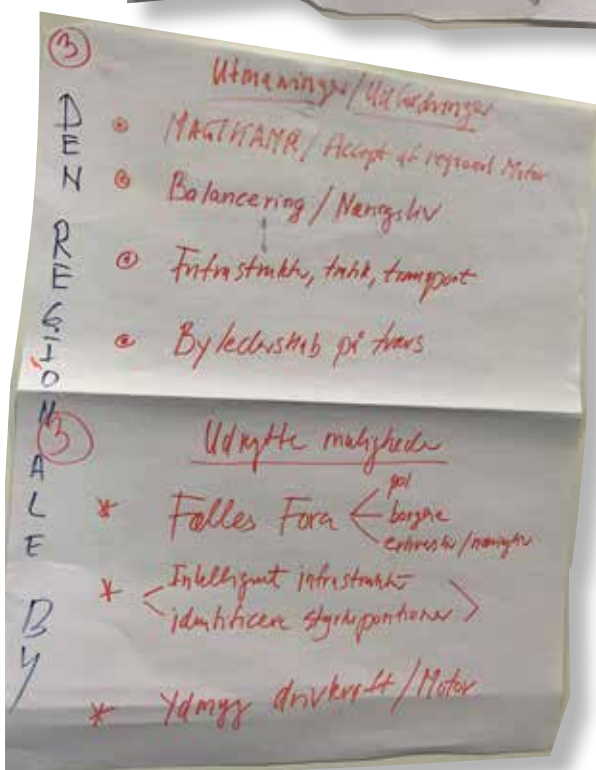 ③
DEN REGIONALE BY
Utmaninger/Udfordringer
MAGTKAMP/Accept af regional Motor
Balancering/Næringsliv
Infrastruktur, trafik, transport
Bylederskab på tværs
③
Udnytte muligheder
Fælles Fora
pol
borgere
erhvervsliv/næringsliv
Intelligent infrastruktur
identificere styrkepositioner
Ydmyg drivkraft/Motor